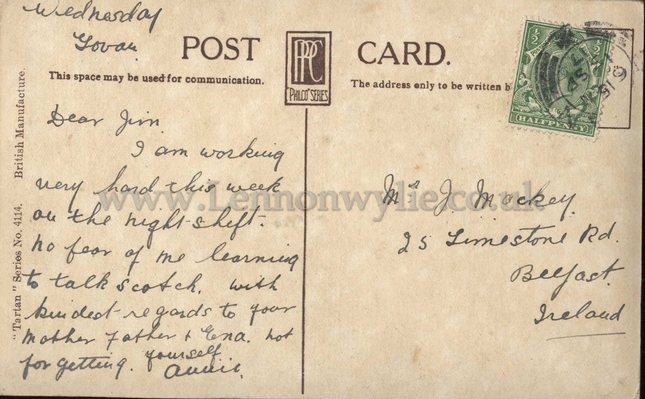 Wednesday
Govan.
POST CARD.
PPC
"PHILCO" SERIES
This space may be used for communication.
The address only to be written
"Tartan" Series No. 4114. British Manufacture.
Dear Jim
I am working
very hard this week
on the night-shift.
no fear of me learning
to talk scotch. with
kindest-regards to your
Mother Father + Ena. not
forgetting. yourself
Annie.
Mr J. Mackey.
25 Limestone Rd.
Belfast.
Ireland
HALFPENNY
www.Lennonwylie.co.uk